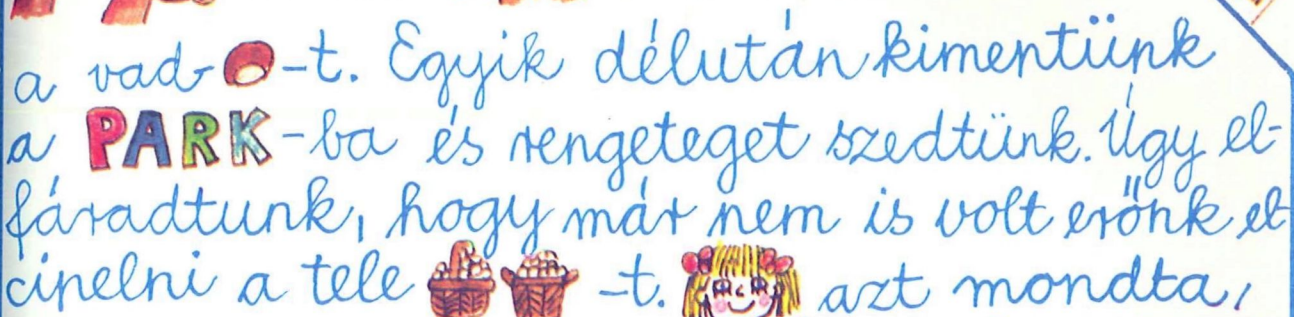 a vad-t. Egyik délután kimentünk
a PARK-ba és rengeteget szedtünk. Úgy el-
fáradtunk, hogy már nem is volt erőnk el
cipelni a tele -t. azt mondta,